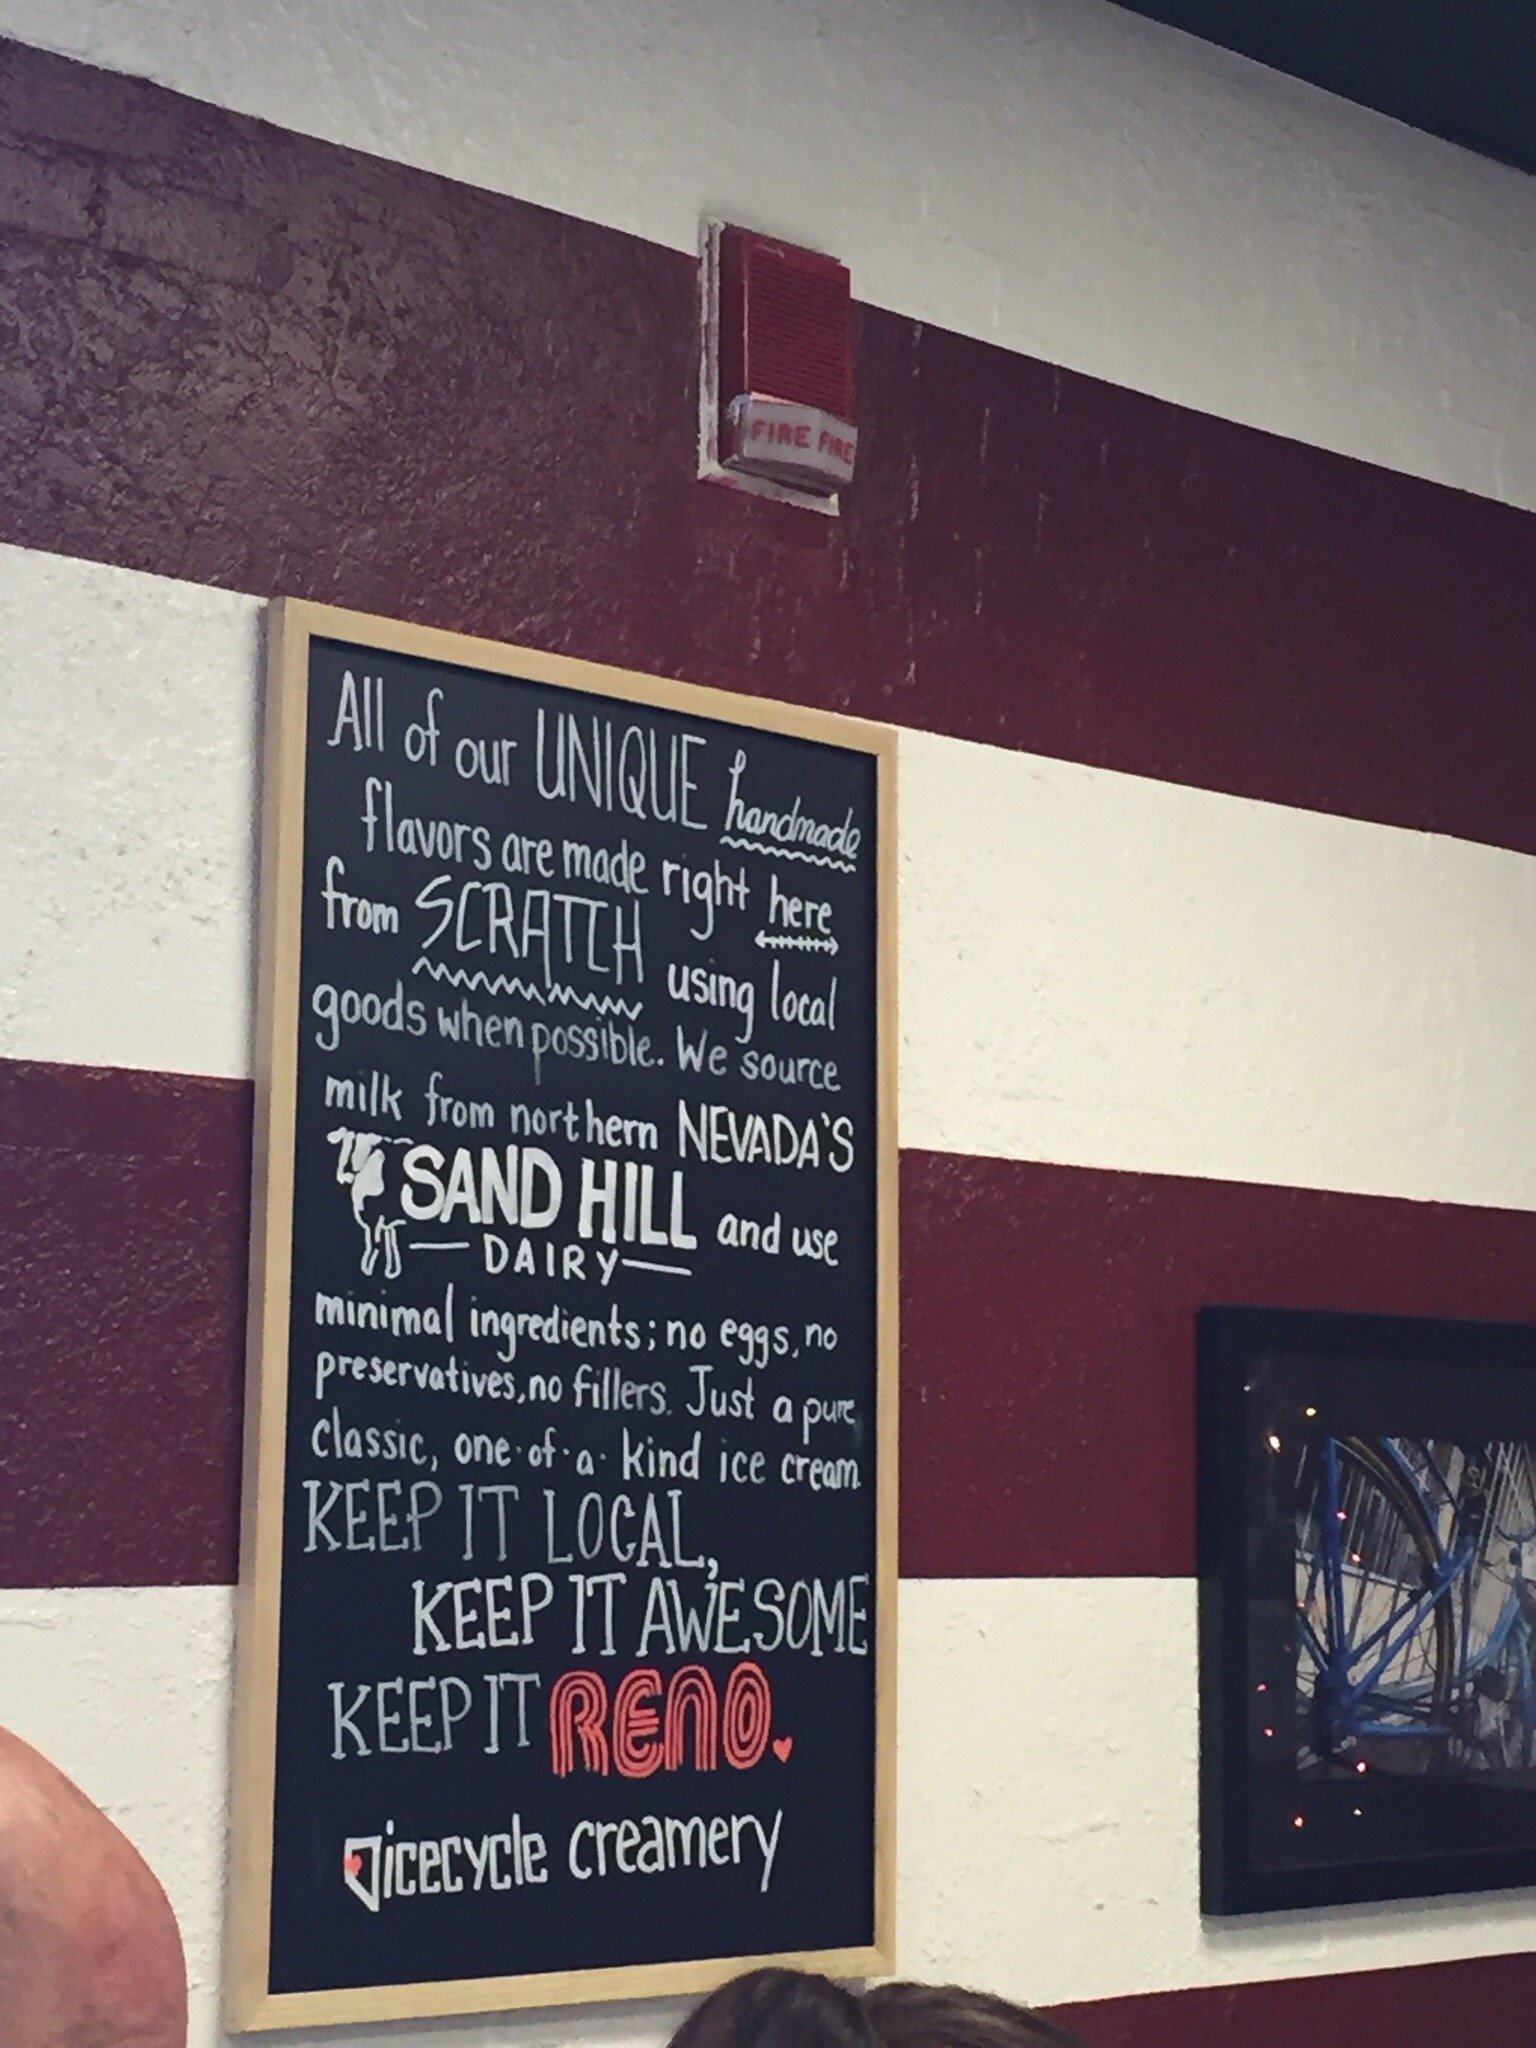 FIRE FIRE
All of our UNIQUE handmade
flavors are made right here
from SCRATCH using local
goods when possible. We source
milk from northern NEVADA'S
SAND HILL and use
DAIRY
minimal ingredients; no eggs, no
preservatives, no fillers. Just a pure
classic, one-of-a-kind ice cream.
KEEP IT LOCAL,
KEEP IT AWESOME
KEEP IT RENO.
icecycle creamery